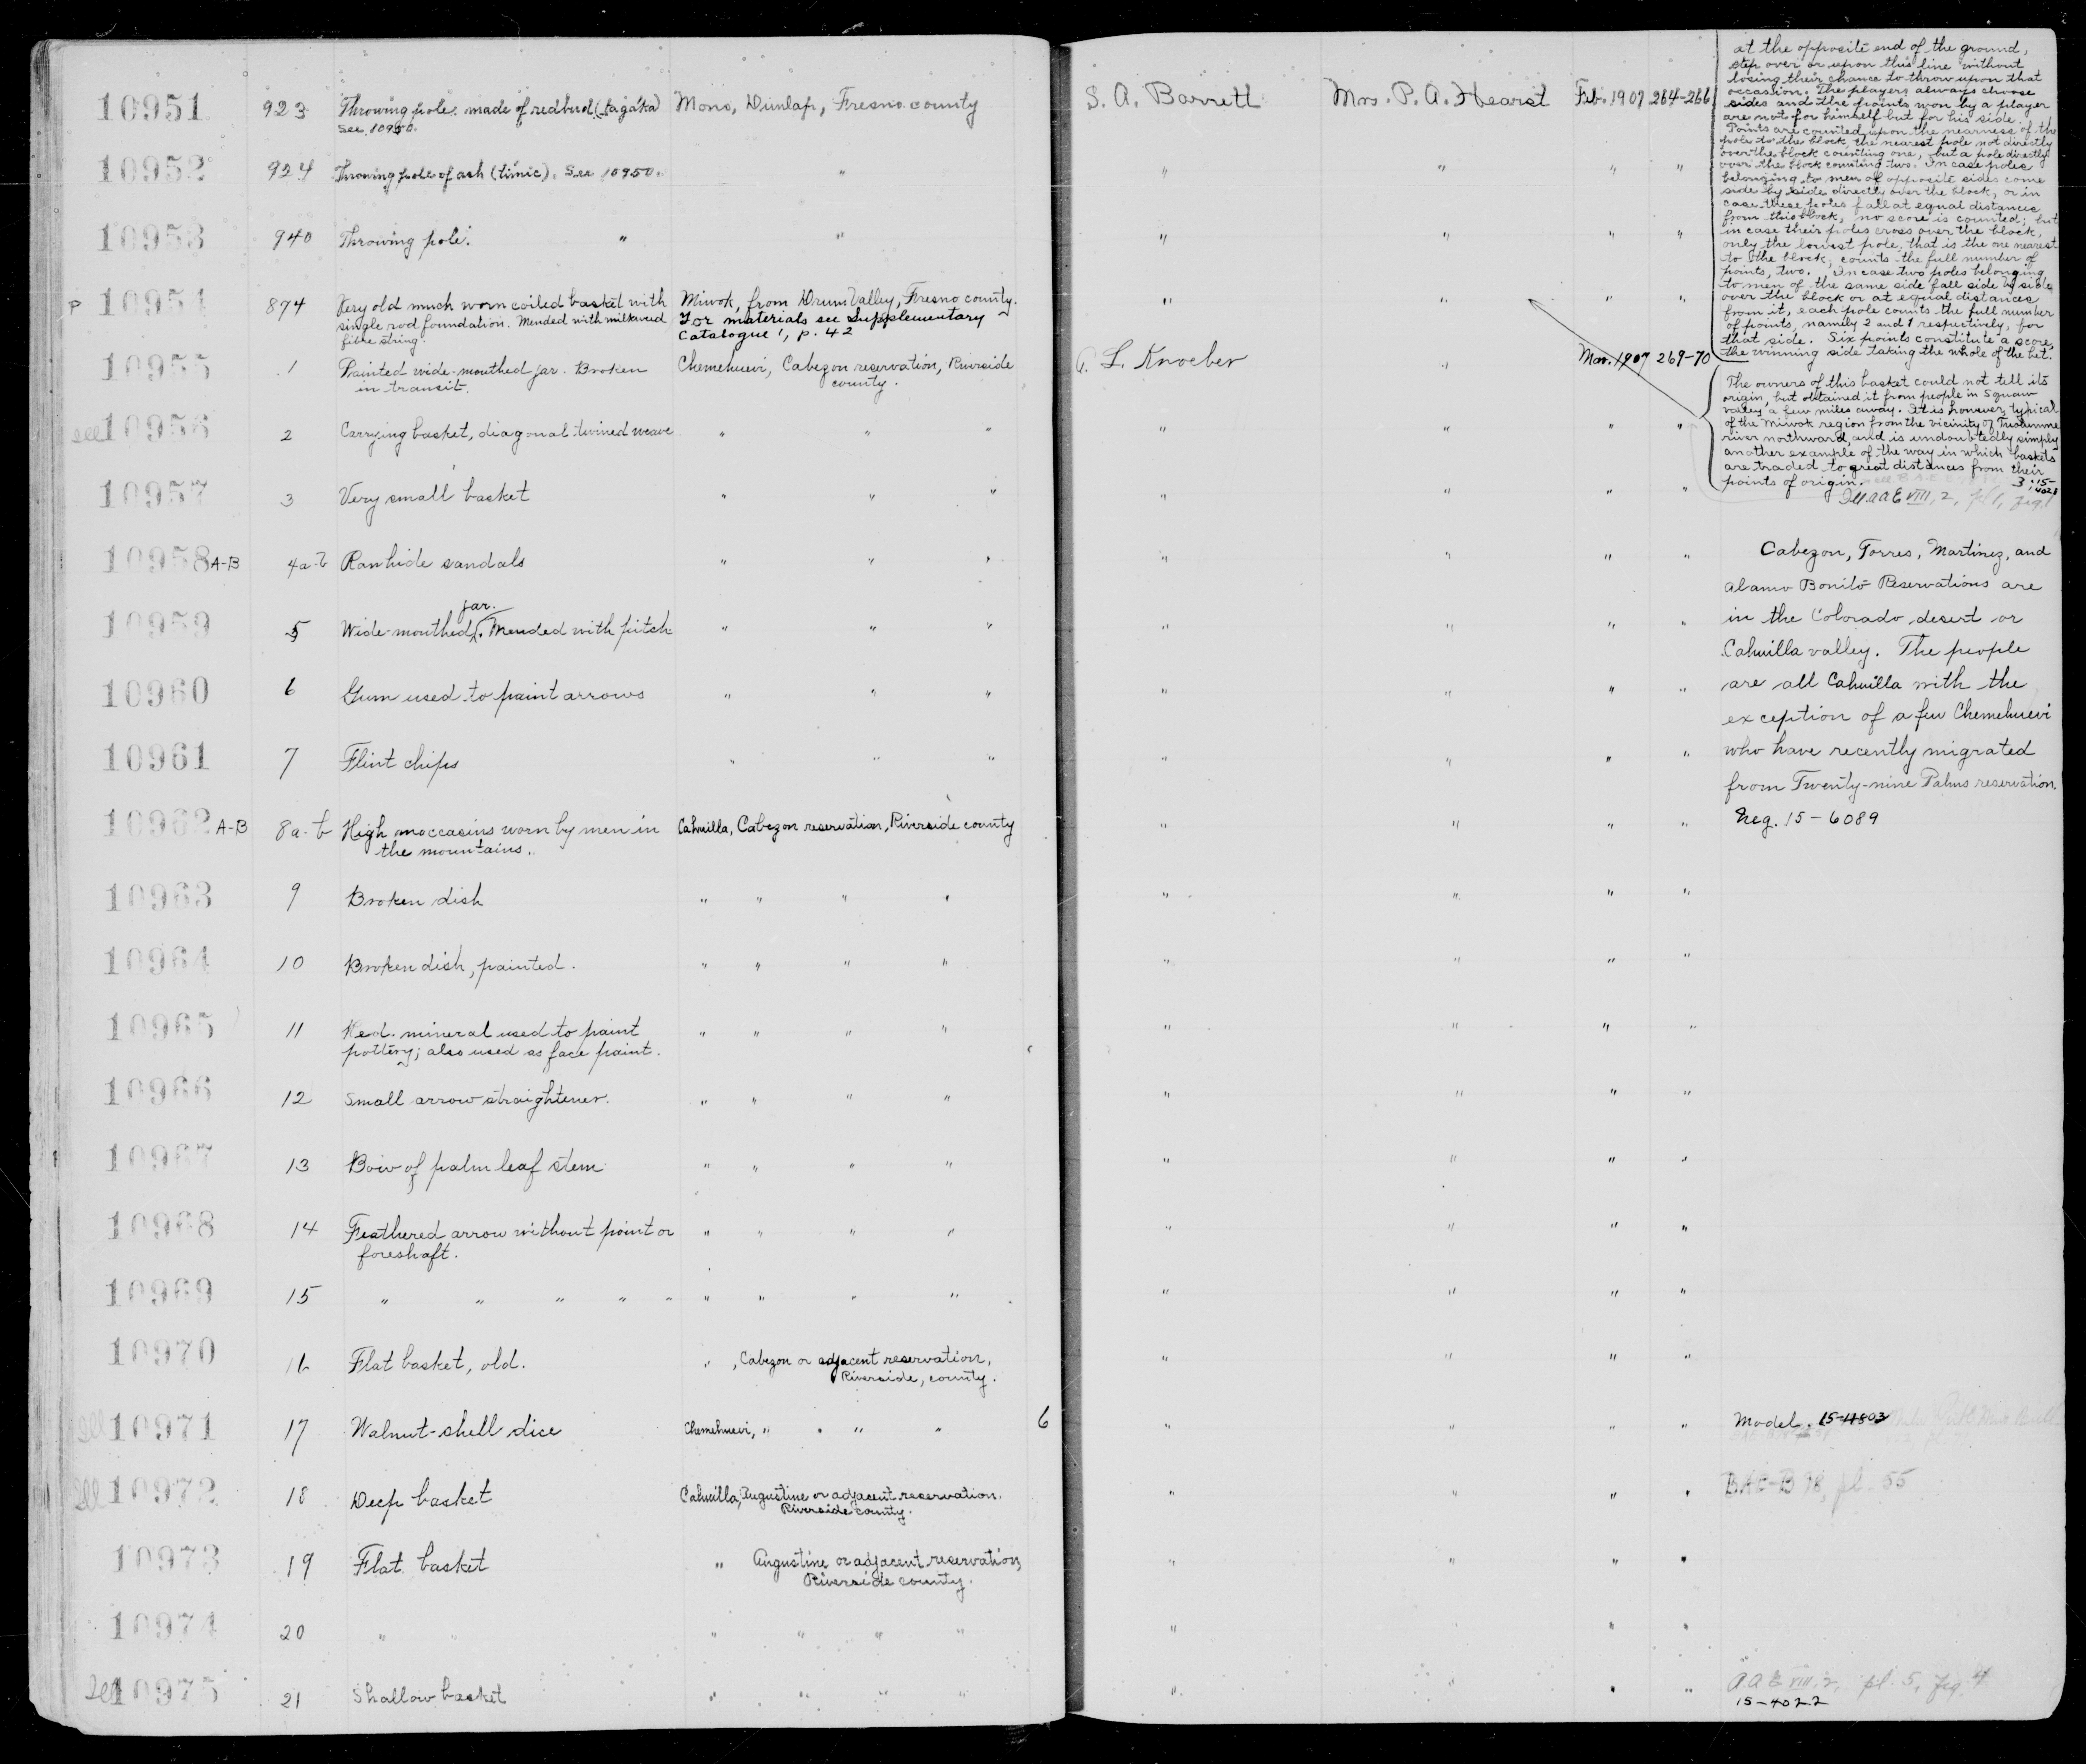 10951 923 Throwing pole. made of redbud (tagáka) Mono, Dunlap, Fresno county S. A. Barrett Mrs. P. A. Hearst Feb. 1907 264-266
See 10950.
10952 924 Throwing pole of ash (timic). See 10950. " " " " "
10953 940 Throwing pole. " " " " " "
P 10954 874 Very old much worn coiled basket with Miwok, from Drum Valley, Fresno county. " " " "
single rod foundation. Mended with milkweed For materials see Supplementary
fibre string. Catalogue 1, p. 42
10955 1 Painted wide-mouthed jar. Broken Chemehuevi, Cabezon reservation, Riverside A. L. Kroeber " Mar. 1907 269-70
in transit. county.
Ill 10956 2 Carrying basket, diagonal twined weave " " " " " " "
10957 3 Very small basket " " " " " " "
10958 A-B 4a-b Rawhide sandals " " " " " " "
jar.
10959 5 Wide-mouthed. Mended with pitch " " " " " " "
10960 6 Gum used to paint arrows " " " " " " "
10961 7 Flint chips " " " " " " "
10962 A-B 8a-b High moccasins worn by men in Cahuilla, Cabezon reservation, Riverside county " " " "
the mountains.
10963 9 Broken dish " " " " " " " "
10964 10 Broken dish, painted. " " " " " " " "
10965 11 Red mineral used to paint " " " " " " " "
pottery; also used as face paint.
10966 12 Small arrow straightener. " " " " " " " "
10967 13 Bow of palm leaf stem " " " " " " " "
10968 14 Feathered arrow without point or " " " " " " " "
foreshaft.
10969 15 " " " " " " " " " " " " "
10970 16 Flat basket, old. " , Cabezon or adjacent reservation, " " " "
Riverside, county.
Ill 10971 17 Walnut-shell dice Chemehuevi, " " " " 6 " " " "
Ill 10972 18 Deep basket Cahuilla, Augustine or adjacent reservation. " " " "
Riverside county.
10973 19 Flat basket " Augustine or adjacent reservation, " " " "
Riverside county.
10974 20 " " " " " " " " " "
Ill 10975 21 Shallow basket " " " " " " " "
at the opposite end of the ground,
step over or upon this line without
losing their chance to throw upon that
occasion. The players always choose
sides and the points won by a player
are not for himself but for his side.
Points are counted upon the nearness of the
pole to the block, the nearest pole not directly
over the block counting one, but a pole directly
over the block counting two. In case poles
belonging to men of opposite sides come
side by side directly over the block, or in
case these poles fall at equal distances
from this block, no score is counted; but
in case their poles cross over the block,
only the lowest pole, that is the one nearest
to the block, counts the full number of
points, two. In case two poles belonging
to men of the same side fall side by side
over the block or at equal distances
from it, each pole counts the full number
of points, namely 2 and 1 respectively, for
that side. Six points constitute a score,
the winning side taking the whole of the bet.
The owners of this basket could not tell its
origin, but obtained it from people in Squaw
valley a few miles away. It is however, typical
of the Miwok region from the vicinity of Tuolumne
river northward, and is undoubtedly simply
another example of the way in which baskets
are traded to great distances from their
points of origin.
Ill. AAE VIII, 2, pl 1, fig. 1
Cabezon, Torres, Martinez, and
Alamo Bonito Reservations are
in the Colorado desert or
Cahuilla valley. The people
are all Cahuilla with the
exception of a few Chemehuevi
who have recently migrated
from Twenty-nine Palms reservation.
Neg. 15-6089
Model. 15-11803
BAE-B 78, pl. 55
AAE VIII, 2, pl. 5, fig. 4
15-4022